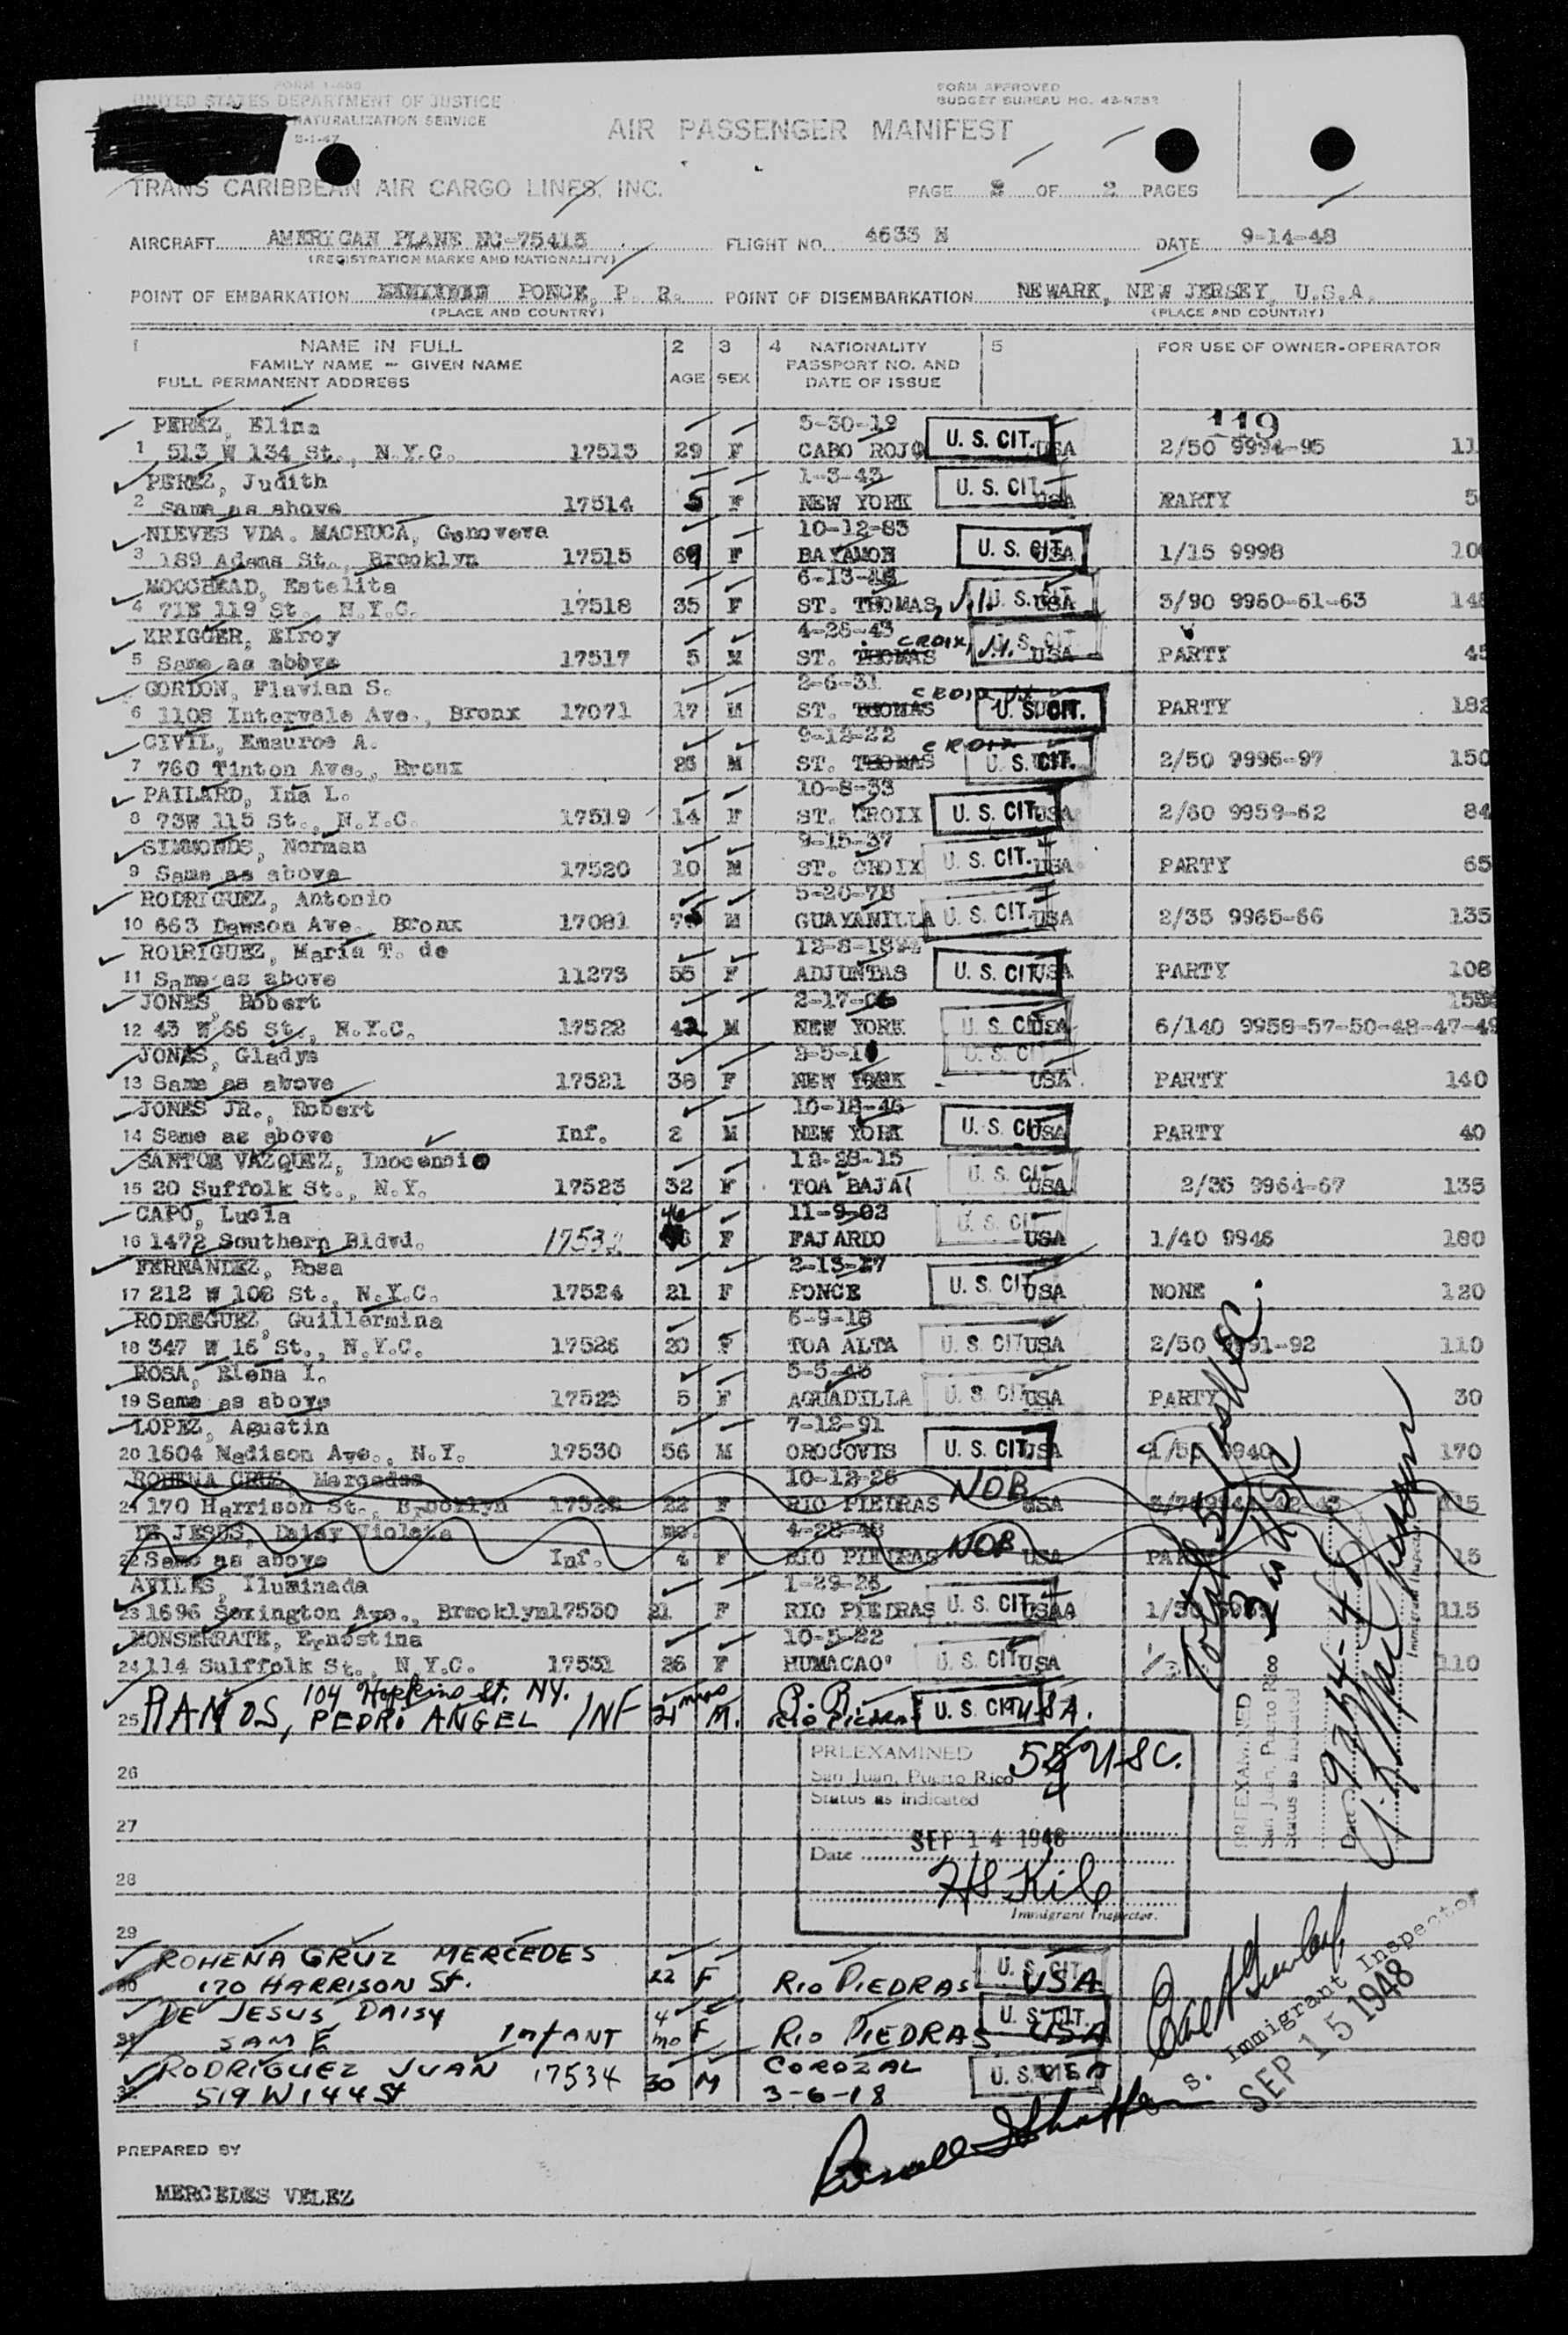 FORM I-466
UNITED STATES DEPARTMENT OF JUSTICE
NATURALIZATION SERVICE
FORM APPROVED
BUDGET BUREAU NO. 43-R252
AIR PASSENGER MANIFEST
TRANS CARIBBEAN AIR CARGO LINES, INC.
PAGE 2 OF 2 PAGES
AIRCRAFT AMERICAN PLANE NC-75413
FLIGHT NO. 4633 N
DATE 9-14-48
(REGISTRATION MARKS AND NATIONALITY)
POINT OF EMBARKATION PONCE, P. R.
POINT OF DISEMBARKATION NEWARK, NEW JERSEY, U.S.A.
(PLACE AND COUNTRY) (PLACE AND COUNTRY)
1 NAME IN FULL 2 3 4 NATIONALITY 5 FOR USE OF OWNER-OPERATOR
FAMILY NAME - GIVEN NAME AGE SEX PASSPORT NO. AND
FULL PERMANENT ADDRESS DATE OF ISSUE
PEREZ, Elina 5-30-19 119
1 513 W 134 St., N.Y.C. 17513 29 F CABO ROJO U. S. CIT. USA 2/50 9994-95 11
PEREZ, Judith 1-3-43
2 Same as above 17514 5 F NEW YORK U. S. CIT. USA PARTY 5
NIEVES VDA. MACHUCA, Genoveva 10-12-83
3 189 Adams St., Brooklyn 17515 69 F BAYAMON U. S. CIT. USA 1/15 9998 10
MOOGHEAD, Estelita 6-13-
4 71E 119 St., N.Y.C. 17518 35 F ST. THOMAS, V.I. U. S. CIT. USA 3/90 9960-61-63 148
KRIGGER, Elroy 4-28-43
5 Same as above 17517 5 M ST. THOMAS CROIX, V.I. U. S. CIT. USA PARTY 45
GORDON, Flavian S. 2-6-31
6 1108 Intervale Ave., Bronx 17071 17 M ST. THOMAS CROIX U. S. CIT. PARTY 182
CIVIL, Emauroe A. 9-12-22
7 760 Tinton Ave., Bronx 25 M ST. THOMAS CROIX U. S. CIT. 2/50 9996-97 150
PAILARD, Ina L. 10-8-33
8 73W 115 St., N.Y.C. 17519 14 F ST. CROIX U. S. CIT. USA 2/60 9959-62 84
SIMMONDS, Norman 9-15-37
9 Same as above 17520 10 M ST. CROIX U. S. CIT. USA PARTY 65
RODRIGUEZ, Antonio 5-20-78
10 663 Dawson Ave. Bronx 17081 M GUAYANILLA U. S. CIT. USA 2/35 9965-66 135
RODRIGUEZ, Maria T. de
11 Same as above 11273 55 F ADJUNTAS U. S. CIT. USA PARTY 108
JONES, Robert 2-17-06
12 43 W 66 St., N.Y.C. 17522 42 M NEW YORK U. S. CIT. USA 6/140 9958-57-50-48-47-49
JONES, Gladys
13 Same as above 17521 38 F NEW YORK U. S. CIT USA PARTY 140
JONES JR., Robert 10-18-46
14 Same as above Inf. 2 M NEW YORK U. S. CIT USA PARTY 40
SANTOS VAZQUEZ, Inocencio 12-28-15
15 20 Suffolk St., N.Y. 17523 32 F TOA BAJA U. S. CIT USA 2/35 9964-67 135
CAPO, Lucia 11-9-02
16 1472 Southern Bldvd. 17532 46 F FAJARDO U. S. CIT USA 1/40 9946 180
FERNANDEZ, Rosa 2-13-27
17 212 W 108 St., N.Y.C. 17524 21 F PONCE U. S. CIT USA NONE 120
RODREGUEZ, Guillermina 6-9-18
18 347 W 16 St., N.Y.C. 17526 20 F TOA ALTA U. S. CIT USA 2/50 9991-92 110
ROSA, Elena I. 5-5-43
19 Same as above 17525 5 F AGUADILLA U. S. CIT USA PARTY 30
LOPEZ, Agustin 7-12-91
20 1604 Madison Ave., N.Y. 17530 56 M OROCOVIS U. S. CIT. USA 1/50 9940 170
ROHENA CRUZ, Mercedes 10-12-26
21 170 Harrison St., Brooklyn 17528 22 F RIO PIEDRAS NOB USA
DE JESUS, Daisy Violeta mo. 4-28-48
22 Same as above Inf. 4 F RIO PIEDRAS NOB USA 15
AVILES, Iluminada 1-29-26
23 1696 Sexington Ave., Brooklyn 17530 21 F RIO PIEDRAS U. S. CIT. USAA 115
MONSERRATE, Ernestina 10-5-22
24 114 Sulffolk St., N.Y.C. 17531 26 F HUMACAO U. S. CIT USA 110
104 Hopkins St. NY.
25 RAMOS, PEDRO ANGEL INF 21 mos M. P. R. RIO PIEDRAS U. S. CIT U.S.A.
Total 57 USC.
PREEXAMINED 55 USC.
26 San Juan, Puerto Rico
Status as indicated
27
Date SEP 14 1948
28
Immigrant Inspector.
PREEXAMINED
San Juan, Puerto Rico
Status as indicated
Date 9-14-48
Immigrant Inspector
29
ROHENA CRUZ MERCEDES
30 170 HARRISON St. 22 F RIO PIEDRAS U. S. CIT. USA
DE JESUS, DAISY 4
31 SAME INFANT mo F RIO PIEDRAS U. S. CIT. USA
RODRIGUEZ JUAN 17534 COROZAL
32 519 W 144 St 30 M 3-6-18 U. S. CIT USA
S. Immigrant Inspector
SEP 15 1948
PREPARED BY
MERCEDES VELEZ